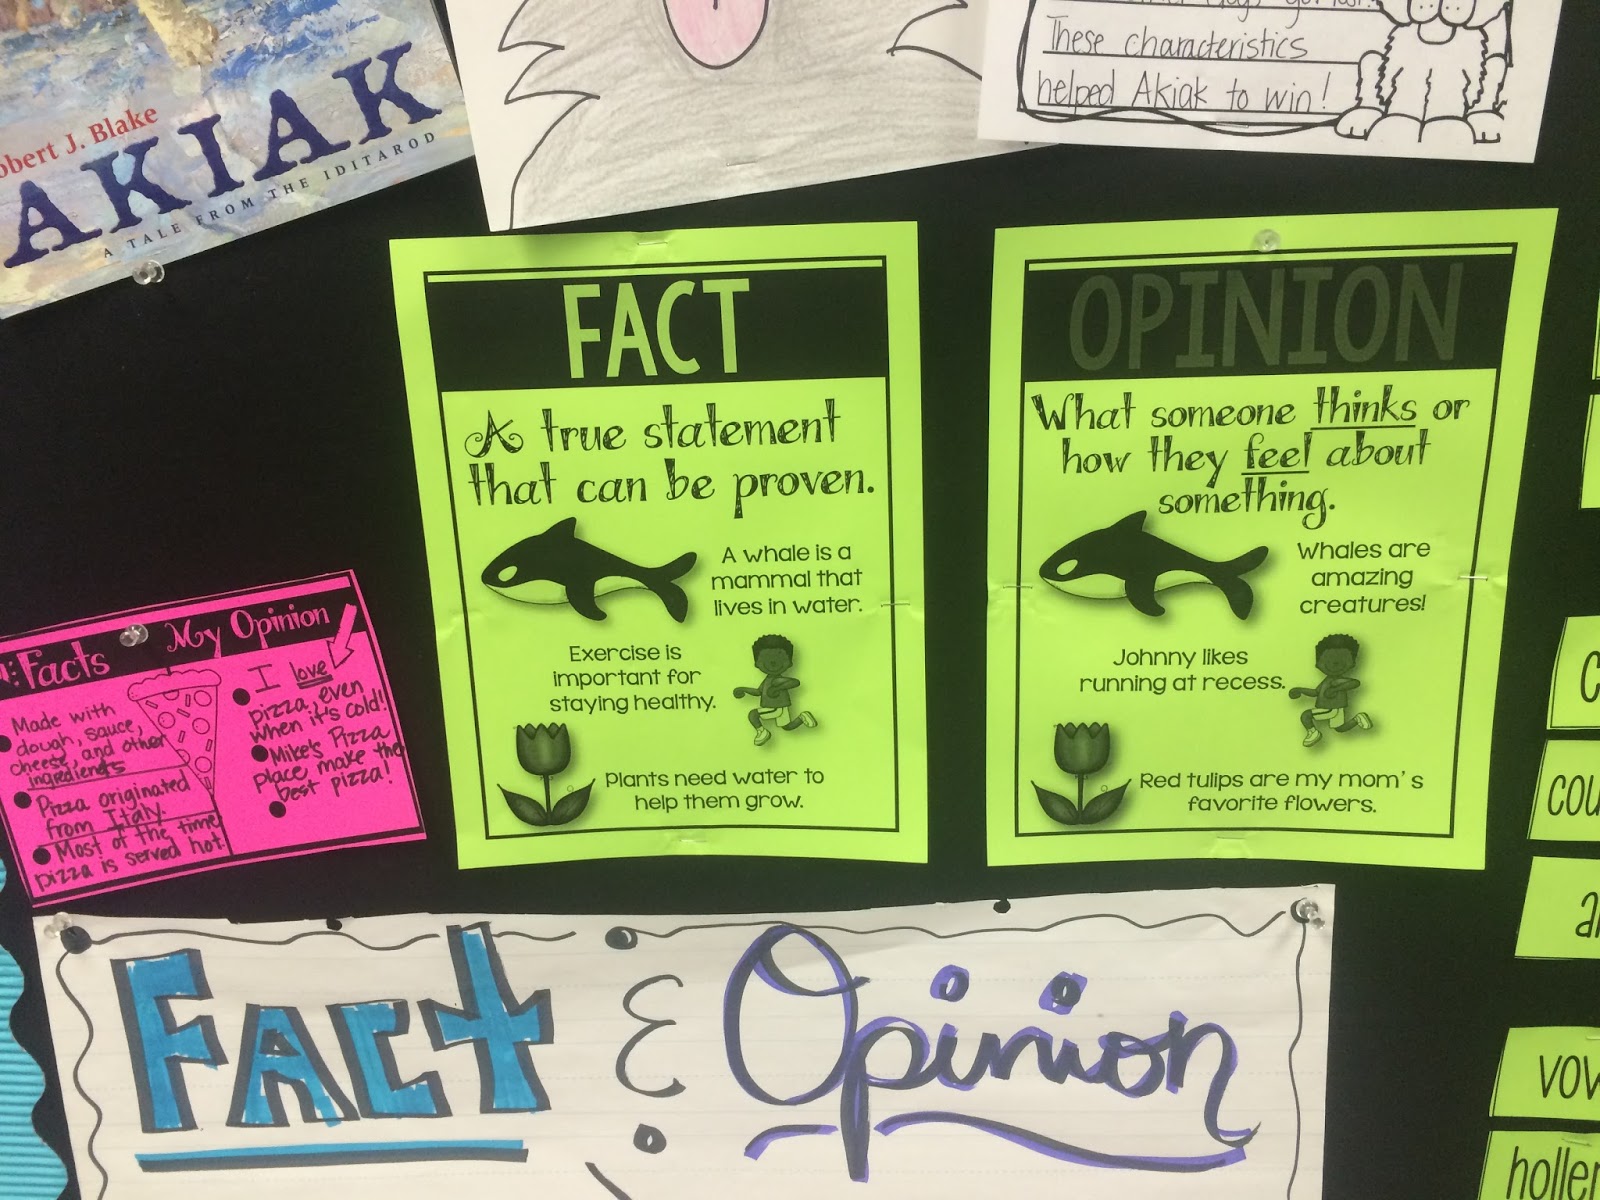 Robert J. Blake
AKIAK
A TALE FROM THE IDITAROD
These characteristics
helped Akiak to win!
FACT
A true statement
that can be proven.
A whale is a
mammal that
lives in water.
Exercise is
important for
staying healthy.
Plants need water to
help them grow.
OPINION
What someone thinks or
how they feel about
something.
Whales are
amazing
creatures!
Johnny likes
running at recess.
Red tulips are my mom's
favorite flowers.
Facts
Made with
dough, sauce,
cheese, and other
ingredients
Pizza originated
from Italy.
Most of the time
pizza is served hot.
My Opinion
I love
pizza, even
when it's cold!
Mike's Pizza
place make the
best pizza!
Fact & Opinion
cou
vow
holler